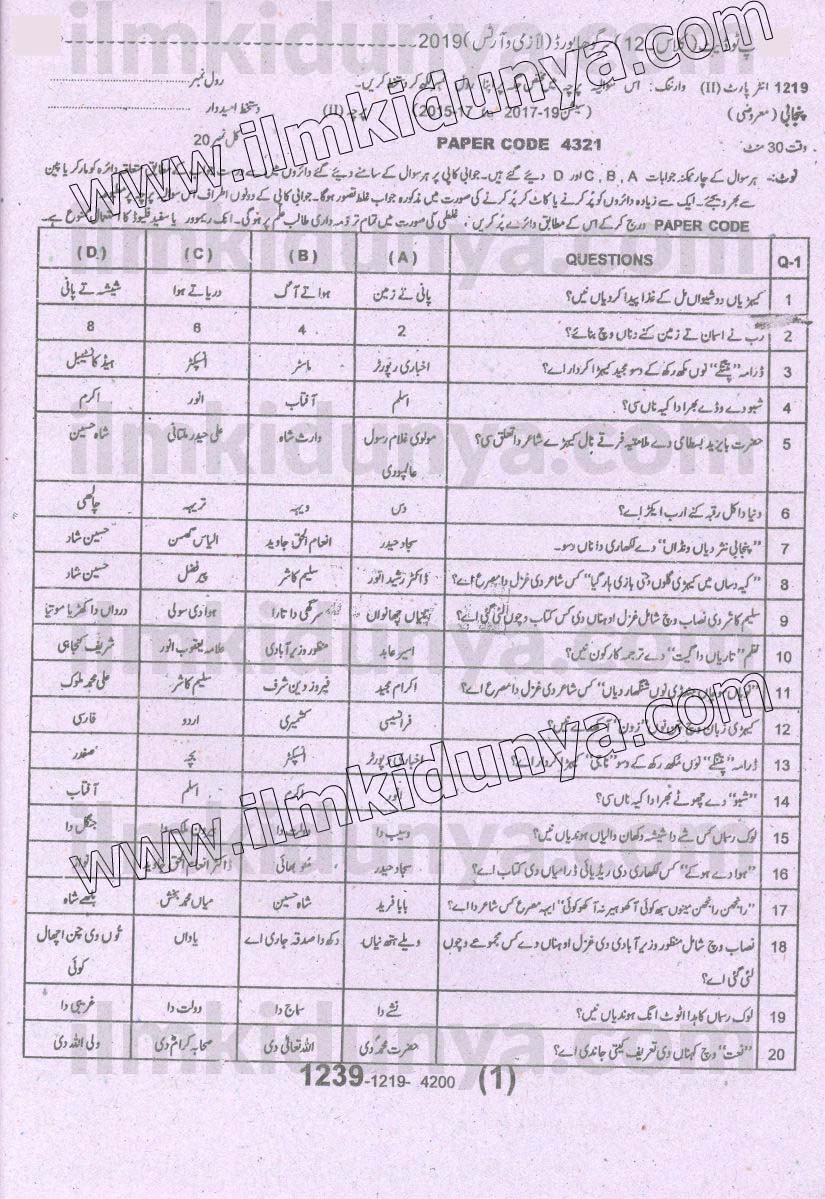 2019(لازمی و آرٹس)
1219 انٹر پارٹ (II) وارننگ : اس سوالیہ پرچہ پر رول نمبر
پنجابی (معروضی) (سیشن 19-2017 17-2015) پرچہ (II) دستخط امیدوار
وقت 30 منٹ PAPER CODE 4321 کل نمبر 20
نوٹ :- ہر سوال کے چار ممکنہ جوابات A ,B ,C اور D دیئے گئے ہیں۔ جوابی کاپی پر ہر سوال کے سامنے دیئے گئے دائروں میں سے متعلقہ دائرہ کو مارکر یا پین
سے بھر دیجئے۔ ایک سے زیادہ دائروں کو پُر کرنے یا کاٹ کر پُر کرنے کی صورت میں مذکورہ جواب غلط تصور ہوگا۔ جوابی کاپی کے دونوں اطراف اس سوالیہ پرچہ پر
PAPER CODE درج کر کے اس کے مطابق دائرے پُر کریں۔ غلطی کی صورت میں تمام تر ذمہ داری طالب علم پر ہوگی۔ انک ریموور یا سفید فلیوڈ کا استعمال ممنوع ہے۔
Q-1 QUESTIONS (A) (B) (C) (D)
1 کیہڑیاں دو شیواں مل کے غذا پیدا کردیاں نیں؟ پانی تے زمین ہوا تے اگ دریا تے ہوا شیشہ تے پانی
2 رب نے اسمان تے زمین کنے دناں وچ بنائے؟ 2 4 6 8
3 ڈرامہ "پتنگے" نوں مکھ رکھ کے دسو مجید کیہڑا کردار اے؟ اخباری رپورٹر ماسٹر انسپکٹر ہیڈ کانسٹیبل
4 شبو دے وڈے بھرا دا کیہ ناں سی؟ اسلم آفتاب انور اکرم
5 حضرت بایزید بسطامی دے ملامتیہ فرقے نال کیہڑے شاعر دا تعلق سی؟ مولوی غلام رسول عالمپوری وارث شاہ علی حیدر ملتانی شاہ حسین
6 دنیا دا کل رقبہ کنے ارب ایکڑ اے؟ دس ویہہ تریہہ چالھی
7 "پنجابی نثر دیاں ونڈاں" دے لکھاری دا ناں دسو۔ سجاد حیدر انعام الحق جاوید الیاس گھمن حسین شاد
8 "کیہ دساں میں کیہڑی گلوں جتی بازی ہار گیا" کس شاعر دی غزل دا مصرع اے؟ ڈاکٹر رشید انور سلیم کاشر پیر فضل حسین شاد
9 سلیم کاشر دی نصاب وچ شامل غزل اوہناں دی کس کتاب وچوں لئی گئی اے؟ تتیاں چھانواں سرگی دا تارا ہوا دی سولی درداں دا کھڑیا موتیا
10 نظم "تاریاں دا گیت" دے ترجمہ کار کون نیں؟ اسیر عابد منظور وزیر آبادی علامہ یعقوب انور شریف کنجاہی
11 کس شاعر دی غزل دا مصرع اے؟ اکرام مجید فیروز دین شرف سلیم کاشر علی محمد ملوک
12 کیہڑی زبان وچ فرانسیسی کشمیری اردو فارسی
13 ڈرامہ "پتنگے" نوں مکھ رکھ کے دسو کیہڑا کردار اے؟ اخباری رپورٹر انسپکٹر بچہ صفدر
14 "شبو" دے چھوٹے بھرا دا کیہ ناں سی؟ انور اکرم اسلم آفتاب
15 لوک رسماں کس شے دا شیشہ وکھان والیاں ہوندیاں نیں؟ وسیب دا جنگل دا
16 "ہوا دے ہوکے" کس لکھاری دی ریڈیائی ڈرامیاں دی کتاب اے؟ سجاد حیدر منو بھائی ڈاکٹر انعام الحق جاوید
17 "رانجھن رانجھن مینوں سبھ کوئی آکھو ہیر نہ آکھو کوئی" ایہہ مصرع کس شاعر دا اے؟ بابا فرید شاہ حسین میاں محمد بخش بلھے شاہ
18 نصاب وچ شامل منظور وزیر آبادی دی غزل اوہناں دے کس مجموعے وچوں لئی گئی اے؟ ویلے ہتھ نیاں دکھ دا صدقہ جاری اے یاداں توں وی چن اچھال کوئی
19 لوک رسماں کاہدا اٹوٹ انگ ہوندیاں نیں؟ نشے دا سماج دا دولت دا غریبی دا
20 "نعت" وچ کیہناں دی تعریف کیتی جاندی اے؟ حضرت محمدؐ دی اللہ تعالیٰ دی صحابہ کرامؓ دی ولی اللہ دی
1239-1219- 4200 (1)
www.ilmkidunya.com
www.ilmkidunya.com
ilmkidunya.com